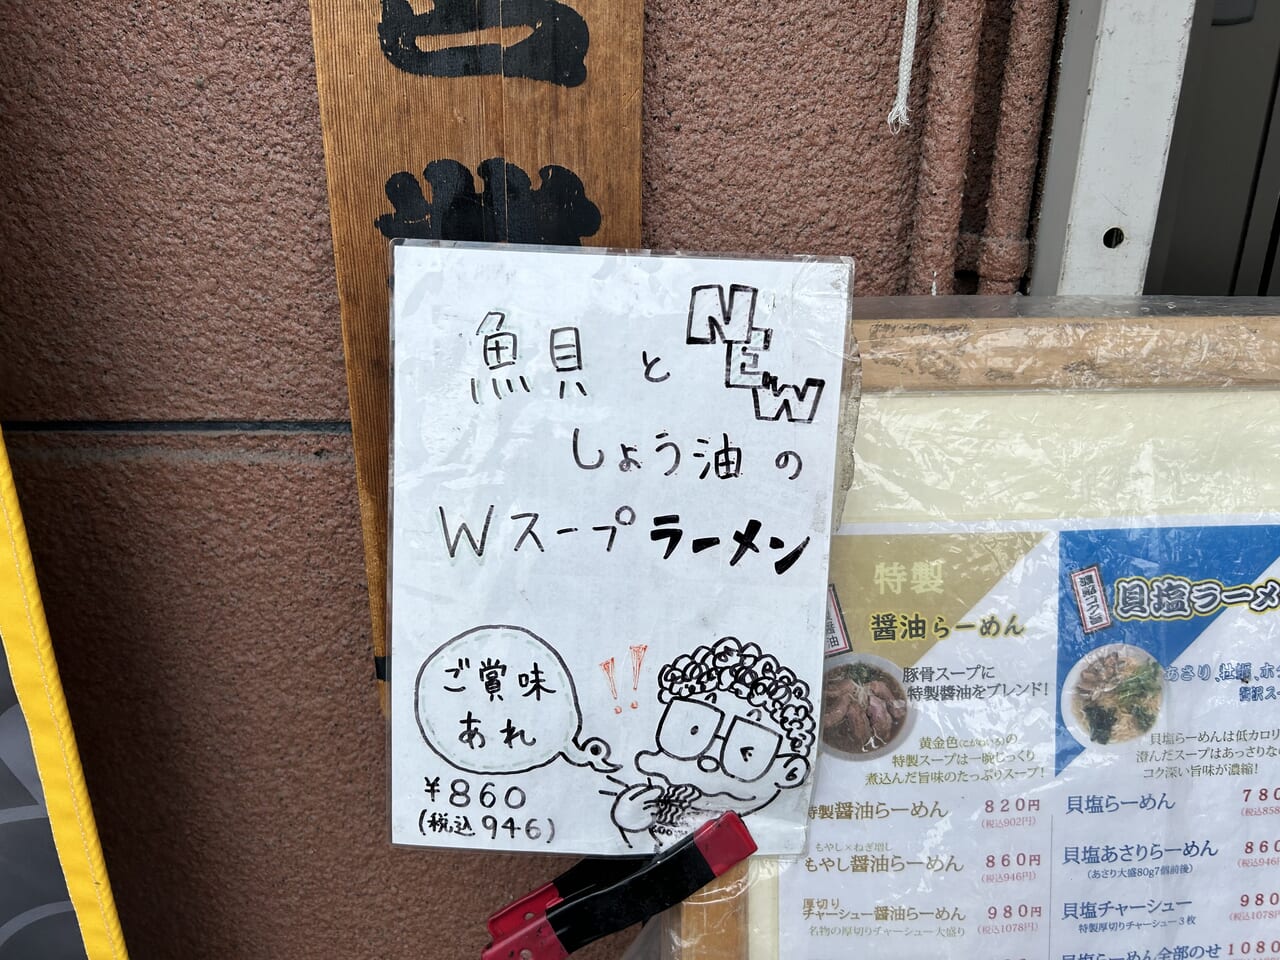 魚貝とNEW
しょう油の
Wスープラーメン
ご賞味
あれ
!!
¥860
(税込946)
特製
醤油らーめん
豚骨スープに
特製醤油をブレンド!
特製スープは一晩じっくり
煮込んだ旨味のたっぷりスープ!
特製醤油らーめん 820円
(税込902円)
もやし×ねぎ増し
もやし醤油らーめん 860円
(税込946円)
厚切り
チャーシュー醤油らーめん 980円
名物の厚切りチャーシュー大盛り (税込1078円)
貝塩ラーメ
あさり、牡蠣、ホタ
贅沢ス
貝塩らーめんは低カロリ
澄んだスープはあっさりな
コク深い旨味が濃縮!
貝塩らーめん 780
(税込858
貝塩あさりらーめん 860
(あさり大盛80g7個前後) (税込946
貝塩チャーシュー 980
特製厚切りチャーシュー3枚 (税込1078
貝塩らーめん全部のせ 1080